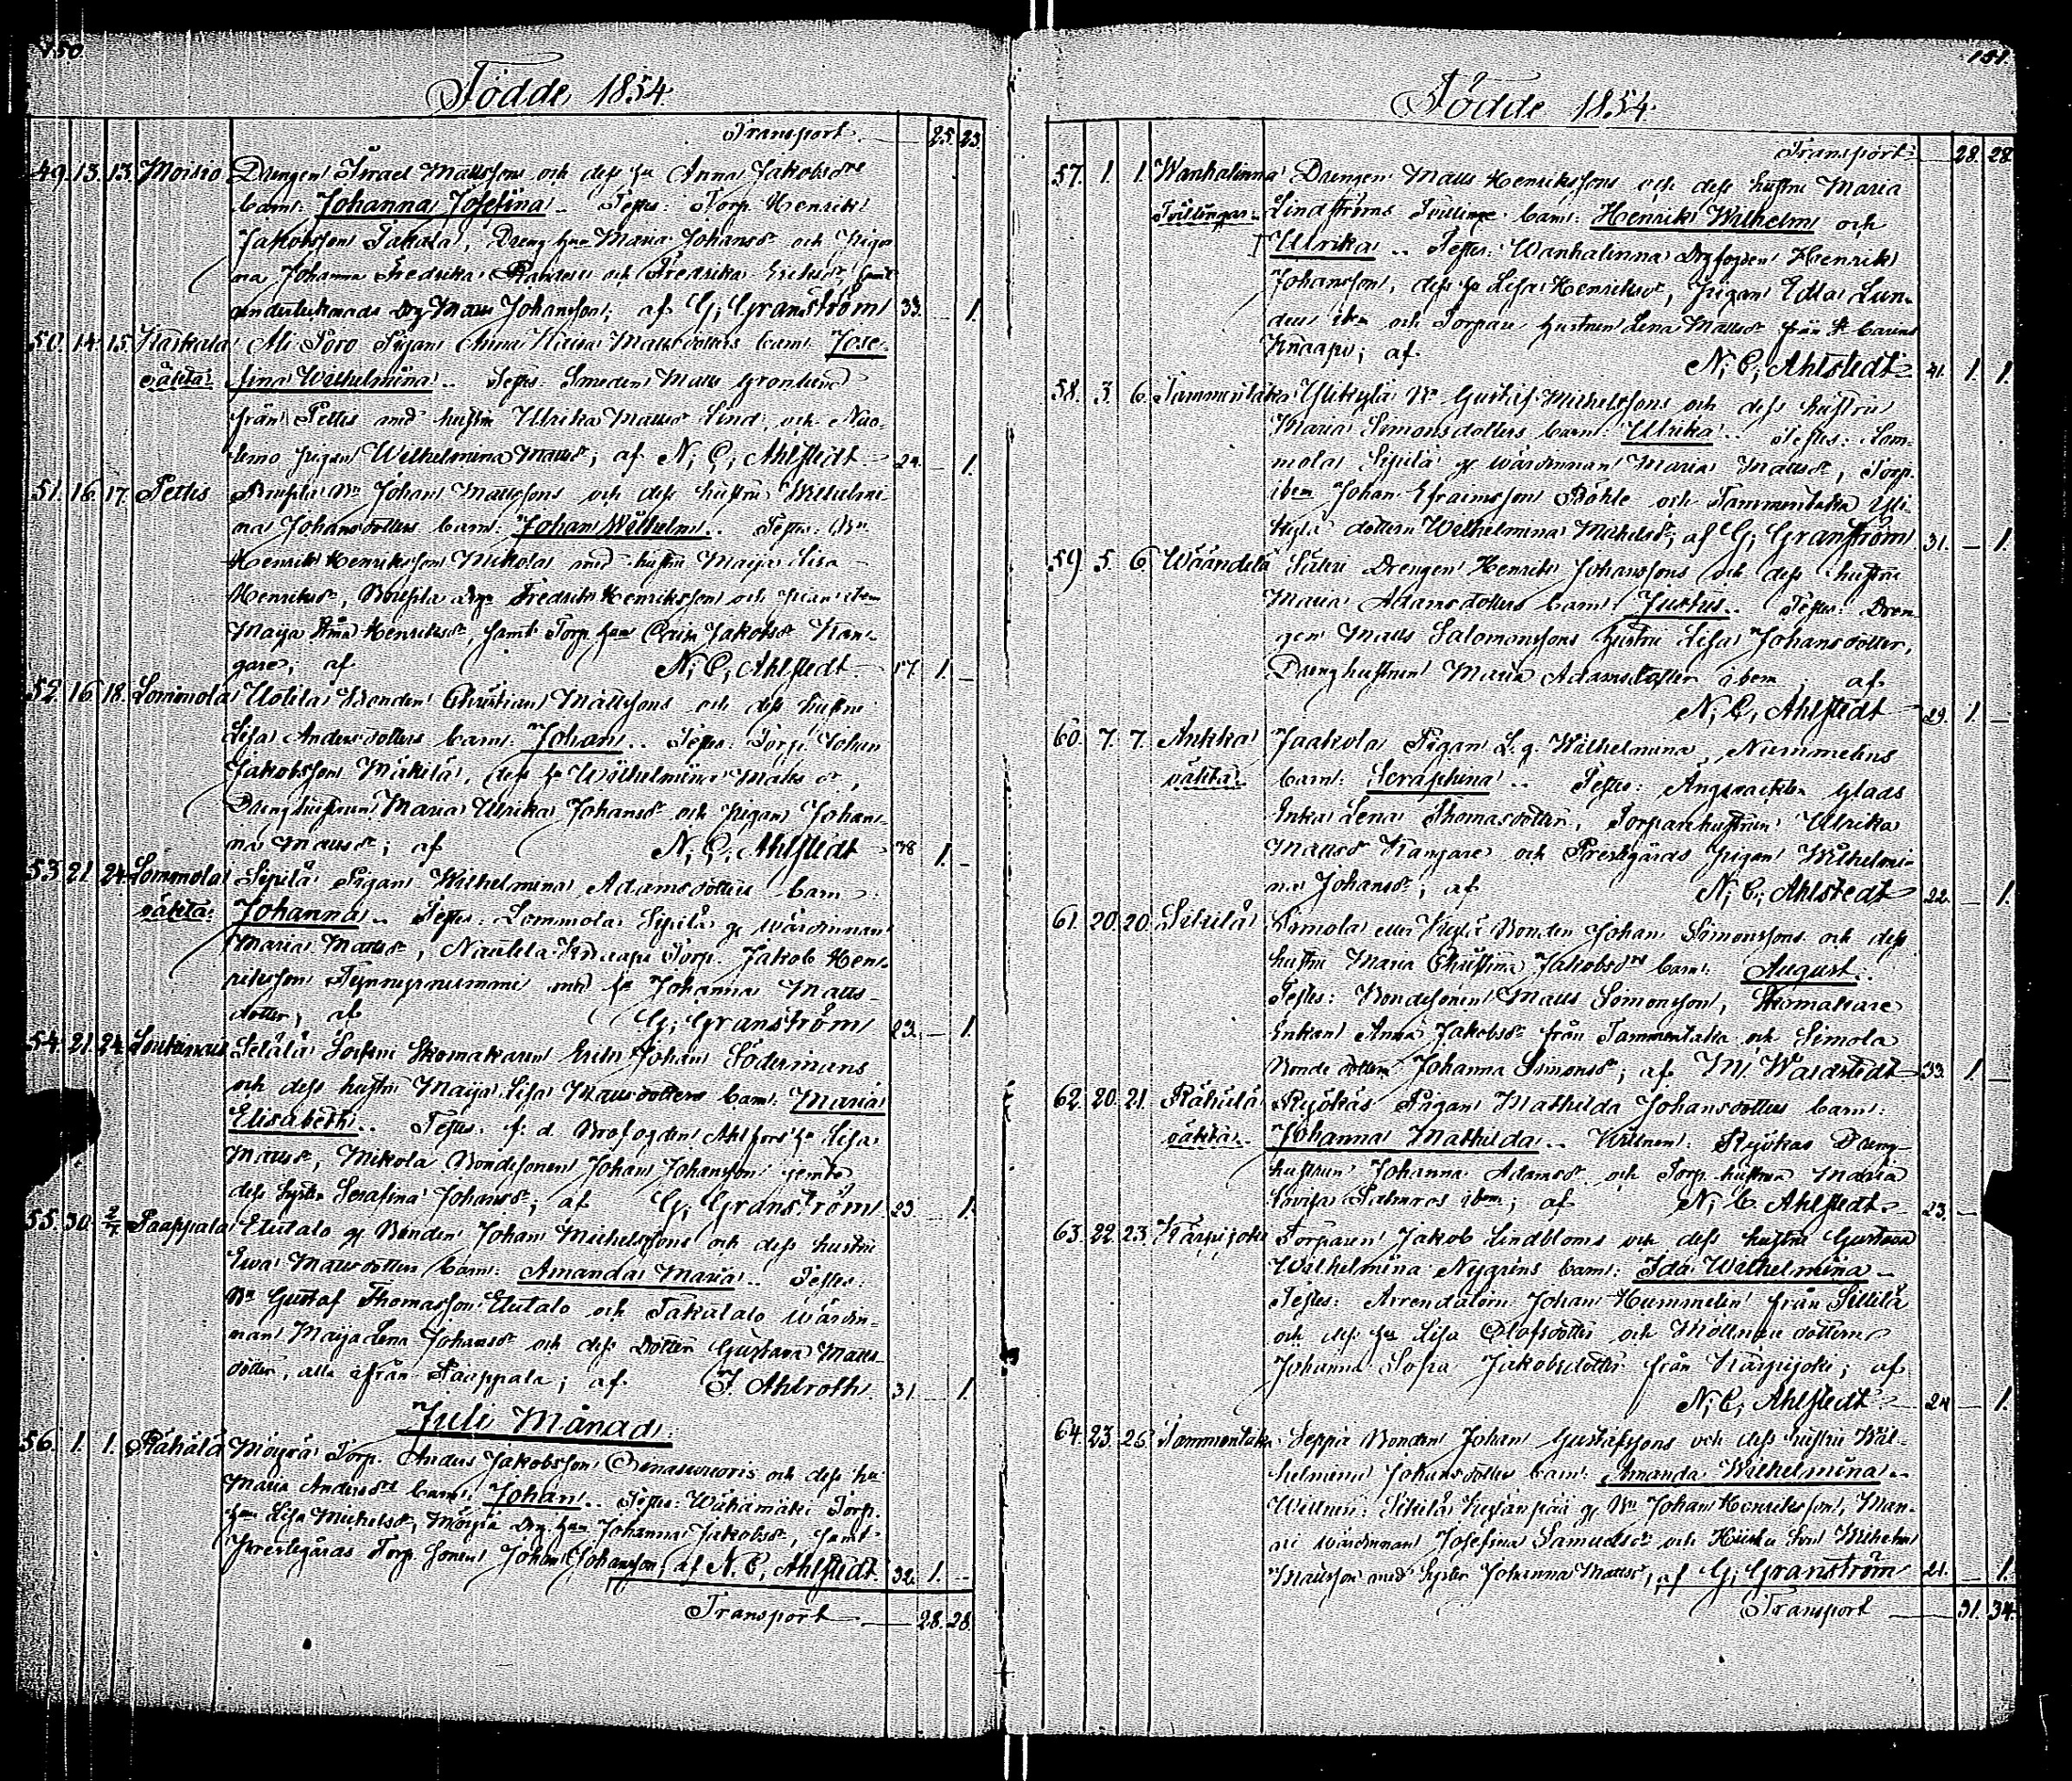 150
Födde 1854.
Transport 25. 23.
49. 13. 13. Moisio Drengen Israel Mattssons och dess hu Anna Jakobsdrs
barn: Johanna Josefina.. Testes: Torp. Henrik
Jakobsson Takala, Dreng hun Maria Johansdr och Pigor
na Johanna Fredrika och Fredrika Ericsdr samt
undertecknads Drg Matts Johansson; af G: Granström 33. — 1.
50. 14. 15. Karkala Ali Poro Pigan Anna Mattsdotters barn: Jose-
oäkta: fina Wilhelmina.. Testes: Smeden Matts Grönlund
från Pettis med hustru Ulrika Mattsdr Lind, och
pigan Wilhelmina Mattsdr; af N: C: Ahlstedt 24. — 1.
51. 16. 17. Pettis Bn Johan Mattssons och dess hustru Wilhelmi-
na Johansdotters barn: Johan Wilhelm.. Testes: Bn
Henrik Henriksson Mikola med hustru Maija Lisa
Henriksdr, Drg: Fredrik Henriksson och Pigan ibm
Maija Henriksdr, samt Torp. hun Carin Jakobsdr Kan-
gare; af N: C: Ahlstedt 1. —
52. 16. 18. Lommola Uotila Bonden Christian Mattssons och dess hustru
Lisa Andersdotters barn: Johan.. Testes: Torp: Johan
Jakobsson Mäkilä, dess hu Wilhelmina Mattsdr,
Dreng hustrun Maria Ulrika Johansdr och Pigan Johan-
na Mattsdr; af N: C: Ahlstedt 38 1. —
53. 21. 24. Lommola Sipilä Pigan Wilhelmina Adamsdotters barn:
oäkta: Johanna.. Testes: Lommola Sipilä g. wärdinnan
Maria Mattsdr, Nautela Knaapi Torp. Jakob Hen-
riksson med hu Johanna Matts-
dotter; af G: Granström 23. — 1.
54. 21. 24. Loukinais Seläla Skomakaren Erik Johan Södermans
och dess hustru Maija Lisa Mattsdotters barn: Maria
Elisabeth.. Testes: f. d. Brofogden Ahlfors' hu Lisa
Mattsdr, Mikola Bondesonen Johan Johansson jemte
dess syster Serafina Johansdr; af G: Granström 23. — 1.
55. 30. 2/7. Paappala Etutalo g. Bonden Johan Michelssons och dess hustru
Ewa Mattsdotters barn: Amanda Maria.. Testes:
Bn Gustaf Thomasson Etutalo och Takatalo wärdin-
nan Maija Lena Johansdr och dess dotter Gustawa Matts-
dotter, alla ifrån Paappala; af J. Ahlroth 31. — 1.
Juli Månad.
56. 1. 1. Rähälä Möyrä Torp. Anders Jakobsson Orenasuuoris och dess hu
Maria Andersdrs barn: Johan.. Testes: Wähämäki Torp.
hun Lisa Michelsdr, Möyrä Drg. hun Johanna Jakobsdr, samt
Prestegårds Torp. sonen Johan Johansson; af N. C. Ahlstedt 32. 1. —
Transport 28. 28.
151.
Födde 1854.
Transport 28. 28.
57. 1. 1. Wanhalinna Drengen Matts Henrikssons och dess hustru Maria
Tvillingar Lindströms Tvillinge barn: Henrik Wilhelm och
Ulrika.. Testes: Wanhalinna Drg fogden Henrik
Johansson, dess hu Lisa Henriksdr, Pigan Edla Lun-
den ibm och Torpare hustrun Lena Mattsdr från St. Carins
Knaapi; af N: C: Ahlstedt 41. 1. 1.
58. 3. 6. Tammentaka Ylikylä Bn Gustaf Michelssons och dess hustru
Maria Simonsdotters barn: Ulrika.. Testes: Lom-
mola Sipilä g. wärdinnan Maria Mattsdr, Torp.
ibm Johan Efraimsson Böhle och Tammentaka Yli-
kylä dottern Wilhelmina Michelsdr; af G: Granström 31. — 1.
59. 5. 6. Wääntelä Säteri Drengen Henrik Johanssons och dess hustru
Maria Adamsdotters barn: Justus.. Testes: Dren-
gen Matts Salomonssons hustru Lisa Johansdotter,
Dreng hustrun Maria Adamsdotter ibem; af
N: C: Ahlstedt 29. 1. —
60. 7. 7. Ankka Jaakola Pigan L. g. Wilhelmina Nummelins
oäkta: barn: Seraphina.. Testes: Glaas
Enka Lena Thomasdotter, Torpare hustrun Ulrika
Mattsdr Kangare och Prestegårds pigan Wilhelmi-
na Johansdr; af N: C: Ahlstedt 22. — 1.
61. 20. 20. Sikilä Simola eller Kylä Bonden Johan Simonssons och dess
hustru Maria Christina Jakobsdrs barn: August.
Testes: Bondesonen Matts Simonsson, Skomakare
Enkan Anna Jakobsdr från Tammentaka och Simola
Bonde dottern Johanna Simonsdr; af M: Waldstedt 33. 1. —
62. 20. 21. Rähälä Reijokas Pigan Mathilda Johansdotters barn:
oäkta: Johanna Mathilda.. Wittnen: Reijokas Dreng-
hustrun Johanna Adamsdr och Torp. hustrun Maria
Lovisa Palmros ibm; af N: C. Ahlstedt 23. —
63. 22. 23. Karpijoki Torparen Jakob Lindbloms och dess hustru Gustava
Wilhelmina Nygréns barn: Ida Wilhelmina
Testes: Arrendatorn Johan Hummelin från Sillilä
och dess hu Lisa Olofsdotter och Möllnare dottern
Johanna Sofia Jakobsdotter från Karpijoki; af
N: C: Ahlstedt 24 — 1.
64. 23. 26. Tammentaka Seppä Bonden Johan Gustafssons och dess hustru Wil-
helmina Johansdotters barn: Amanda Wilhelmina..
Wittnen: Sikilä g. Bn Johan Henriksson, Man-
ni wärdinnan Josefina Samuelsdr och son Wilhelm
Mattsson med syster Johanna Mattsdr; af G: Granström 21. — 1.
Transport 31. 34.